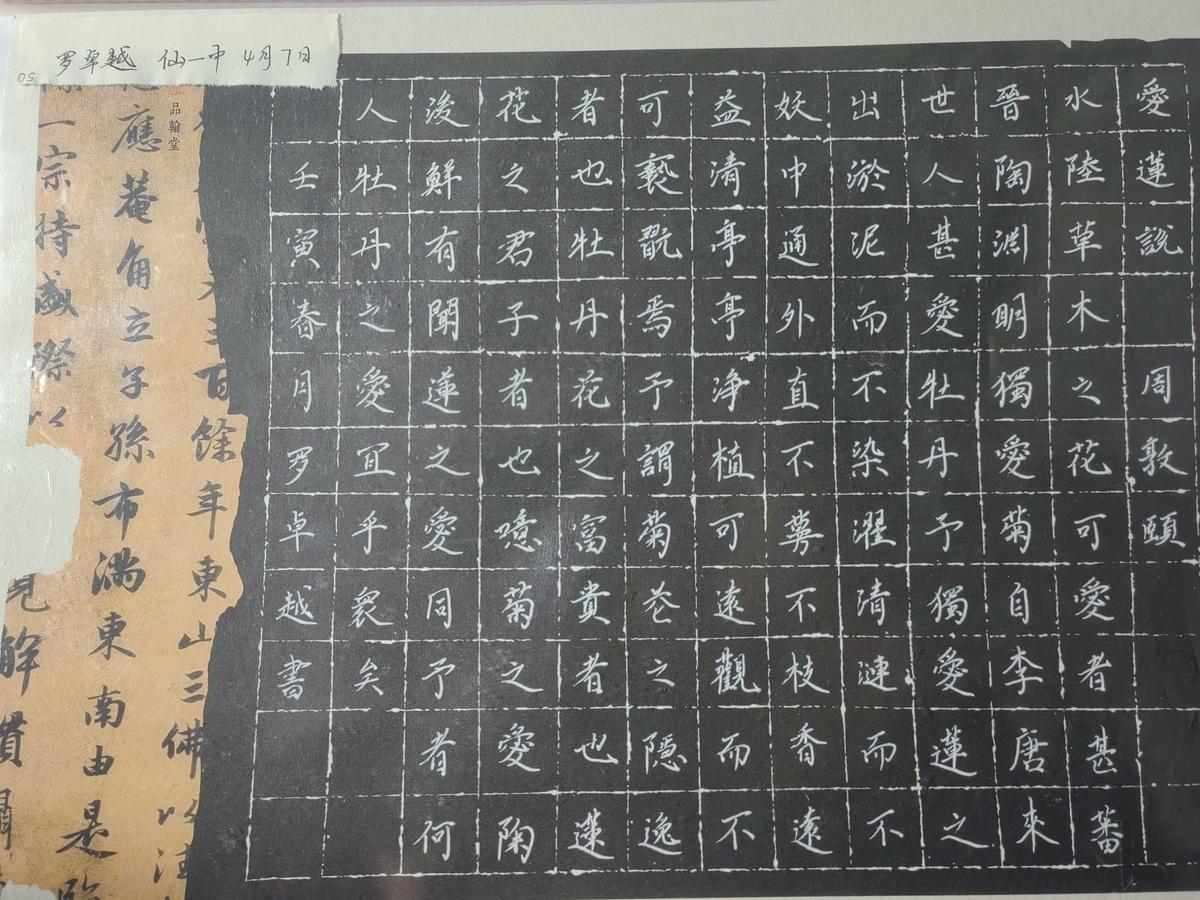 罗卓越 仙一中 4月7日
50
愛蓮説 周敦頤
水陸草木之花可愛者甚蕃
晉陶淵明獨愛菊自李唐來
世人甚愛牡丹予獨愛蓮之
出淤泥而不染濯清漣而不
妖中通外直不蔓不枝香遠
益清亭亭淨植可遠觀而不
可褻翫焉予謂菊花之隱逸
者也牡丹花之富貴者也蓮
花之君子者也噫菊之愛陶
後鮮有聞蓮之愛同予者何
人牡丹之愛宜乎衆矣
壬寅春月罗卓越書
品翰堂
三百餘年東山三佛以法
應菴角立子孫布滿東南由是
一宗持盛際以
見解